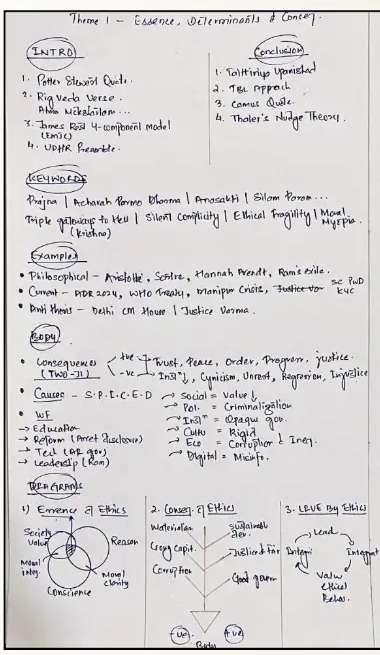 Theme 1 - Essence, Determinants & Conseq.
INTRO
1. Potter Stewart Quote.
2. Rig Veda Verse.
3. James Rest 4-component Model
4. UDHR Preamble.
Conclusion
1. Taittiriya Upanishad
2. TBL Approach
3. Camus Quote.
4. Thaler's Nudge Theory.
KEYWORDS
Prajna | Acharah Parmo Dharma | Anasakti | Silam Param...
Triple gateways to Hell | Silent Complicity | Ethical Fragility | Moral Myopia.
(Krishna)
Examples
• Philosophical - Aristotle, Sartre, Hannah Arendt, Ram's exile.
• Current - ADR 2024, WHO Treaty, Manipur Crisis, SC PWD KYC
• Anti thesis - Delhi CM House | Justice Varma.
BODY
• Consequences +ve → Trust, Peace, Order, Progress, justice.
(TWO-JI) -ve → Instn ↓, Cynicism, Unrest, Regression, Injustice
• Causes - S.P.I.C.E.D → Social = Value ↓
→ Pol. = Criminalization
→ Instn = Opaque gov.
→ Cultu = Rigid
→ Eco = Corruption & Ineq.
→ Digital = Misinfo.
• WF
→ Education
→ Reform (Asset disclosure)
→ Tech
→ Leadership (Ram)
DIAGRAMS
1) Essence of Ethics
Society Value
Reason
Moral integ.
Moral clarity
Conscience
2. Conseq. of Ethics
Materialism
Sustainable dev.
Crony Capit.
Corruption
Good govern
-ve
+ve
Body
3. LRVE By Ethics
Lead
Integrat
Value
Ethical
Behav.